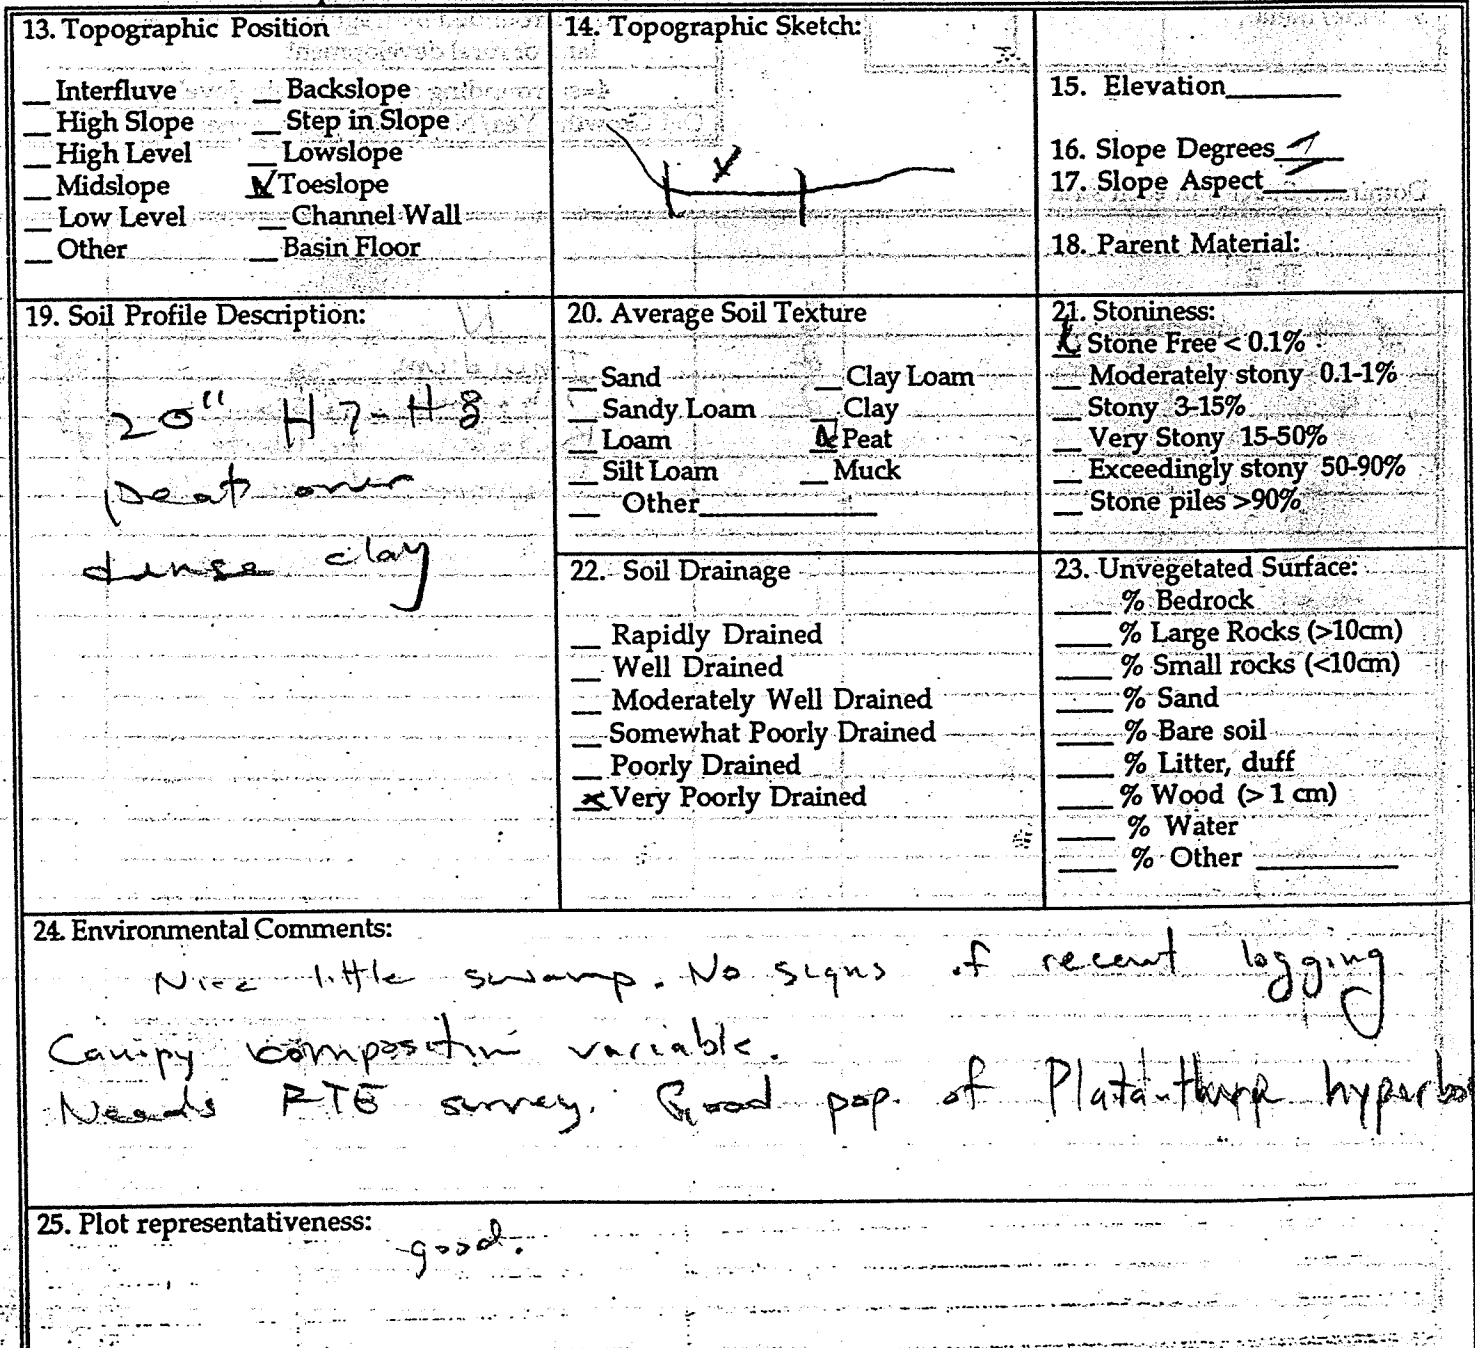 13. Topographic Position
__ Interfluve __ Backslope
__ High Slope __ Step in Slope
__ High Level __ Lowslope
__ Midslope ✓ Toeslope
__ Low Level __ Channel Wall
__ Other __ Basin Floor
14. Topographic Sketch:
15. Elevation______
16. Slope Degrees
17. Slope Aspect______
18. Parent Material:
19. Soil Profile Description:
20" H7-H8
peat over
dense clay
20. Average Soil Texture
__ Sand __ Clay Loam
__ Sandy Loam __ Clay
__ Loam x Peat
__ Silt Loam __ Muck
__ Other__________
21. Stoniness:
x Stone Free < 0.1%
__ Moderately stony 0.1-1%
__ Stony 3-15%
__ Very Stony 15-50%
__ Exceedingly stony 50-90%
__ Stone piles >90%
22. Soil Drainage
__ Rapidly Drained
__ Well Drained
__ Moderately Well Drained
__ Somewhat Poorly Drained
__ Poorly Drained
x Very Poorly Drained
23. Unvegetated Surface:
____ % Bedrock
____ % Large Rocks (>10cm)
____ % Small rocks (<10cm)
____ % Sand
____ % Bare soil
____ % Litter, duff
____ % Wood (> 1 cm)
____ % Water
____ % Other ________
24. Environmental Comments:
Nice little swamp. No signs of recent logging
Canopy composition variable.
Needs RTE survey. Good pop. of Platanthera hyperbo
25. Plot representativeness:
good.